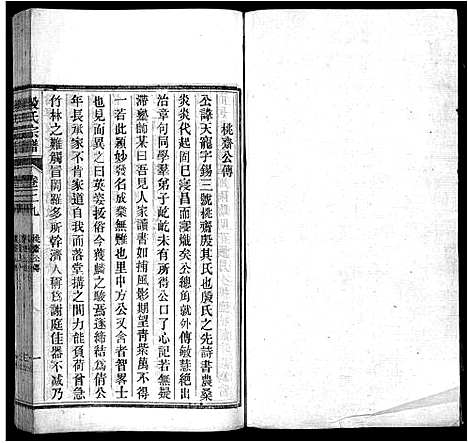 桃齋公傳
公諱天寵字錫三號桃齋殷其氏也殷氏之先詩書農桑
炎炎代起固已寖昌而寖熾矣公總角就外傅敏慧絕出
治章句同學羣子齕齕未有所得公口了心記若無有
滯塾師某曰吾見人家讀書如捕風影期望青紫萬不得
一若此穎妙發名成業無難也里中方公又含者智畧士
也見而異之曰英姿挺俗今獲麟之駿焉遂締結為倩公
年長承家不肯家道自我而落堂搆之間力能負荷曾急
竹林之難觸冒罔羅多所幹濟人稱為謝庭佳器不減乃
殷氏宗譜
卷三九
桃齋公傳
一